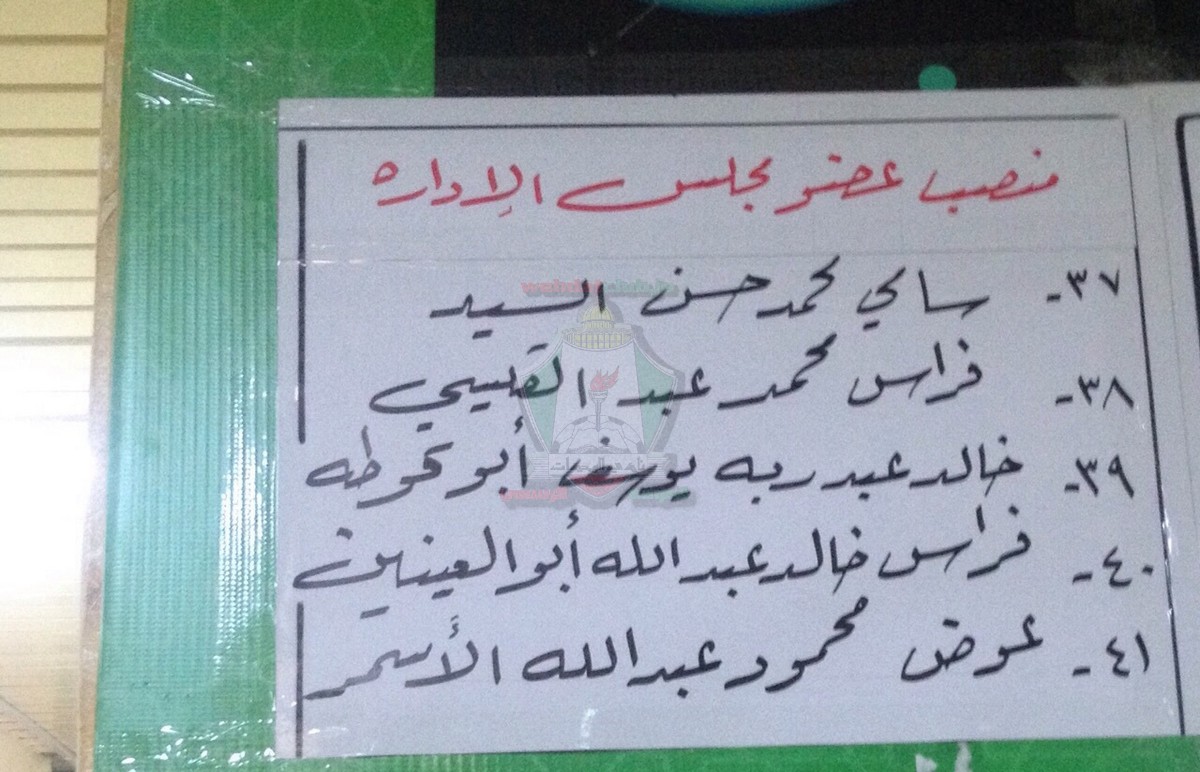 منصب عضو مجلس الإداره
٣٧- سامي محمد حسن السيد
٣٨- فراس محمد عبد القيسي
٣٩- خالد عبد ربه يوسف أبو حوطه
٤٠- فراس خالد عبد الله أبو العينين
٤١- عوض محمود عبد الله الأسمر